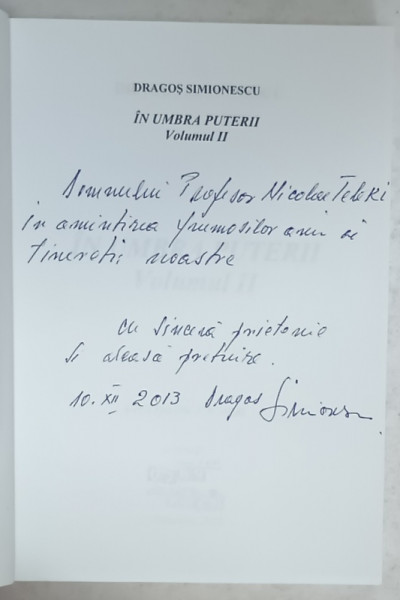 DRAGOȘ SIMIONESCU
ÎN UMBRA PUTERII
Volumul II
Domnului Profesor Nicolae Teleki
în amintirea frumoșilor ani ai
tinereții noastre
cu sinceră prietenie
și aleasă prețuire.
10.XII 2013 Dragoș Simionescu